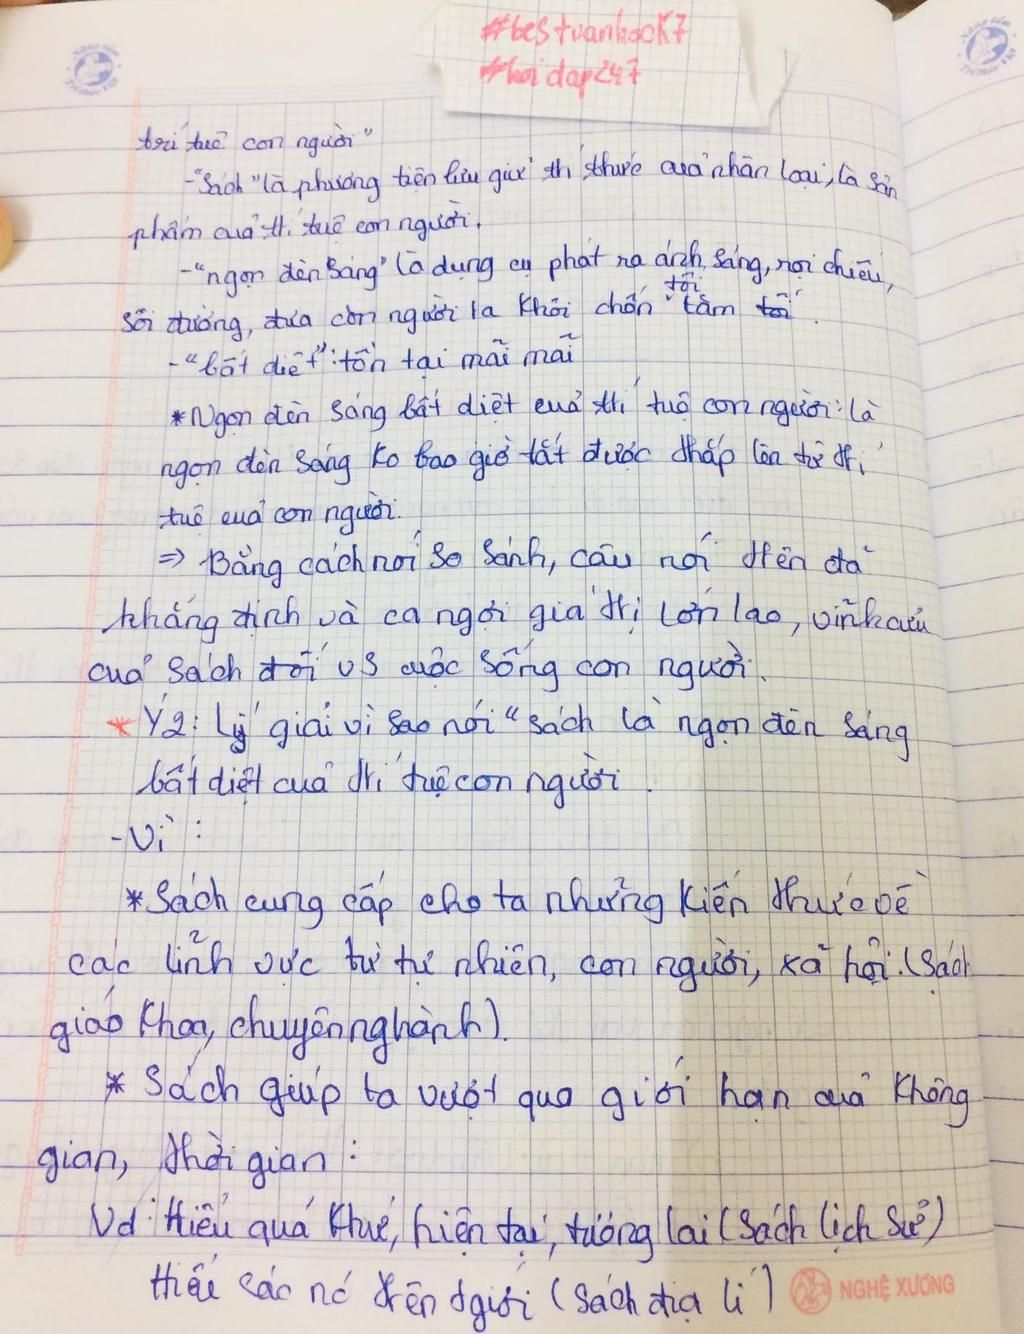 #bestuankook7
#hoidap247
trí tuệ con người"
-"Sách" là phương tiện lưu giữ tri thức của nhân loại, là sản
phẩm của trí tuệ con người.
-"ngọn đèn sáng" là dụng cụ phát ra ánh sáng, rọi chiếu,
soi đường, đưa con người ra khỏi chốn tối tăm tối.
-"bất diệt": tồn tại mãi mãi
*Ngọn đèn sáng bất diệt của trí tuệ con người: là
ngọn đèn sáng ko bao giờ tắt được thắp lên từ trí
tuệ của con người.
=> Bằng cách nói so sánh, câu nói trên đã
khẳng định và ca ngợi giá trị lớn lao, vĩnh cửu
của sách đối vs cuộc sống con người.
* Ý2: Lý giải vì sao nói "sách là ngọn đèn sáng
bất diệt của trí tuệ con người.
-Vì:
*Sách cung cấp cho ta những kiến thức về
các lĩnh vực từ tự nhiên, con người, xã hội. (Sách
giáo khoa, chuyên nghành).
* Sách giúp ta vượt qua giới hạn của không
gian, thời gian:
Vd: Hiểu quá khứ, hiện tại, tương lai (Sách lịch sử)
Hiểu các nc trên tgiới (Sách địa lí)
NGHỆ XƯƠNG